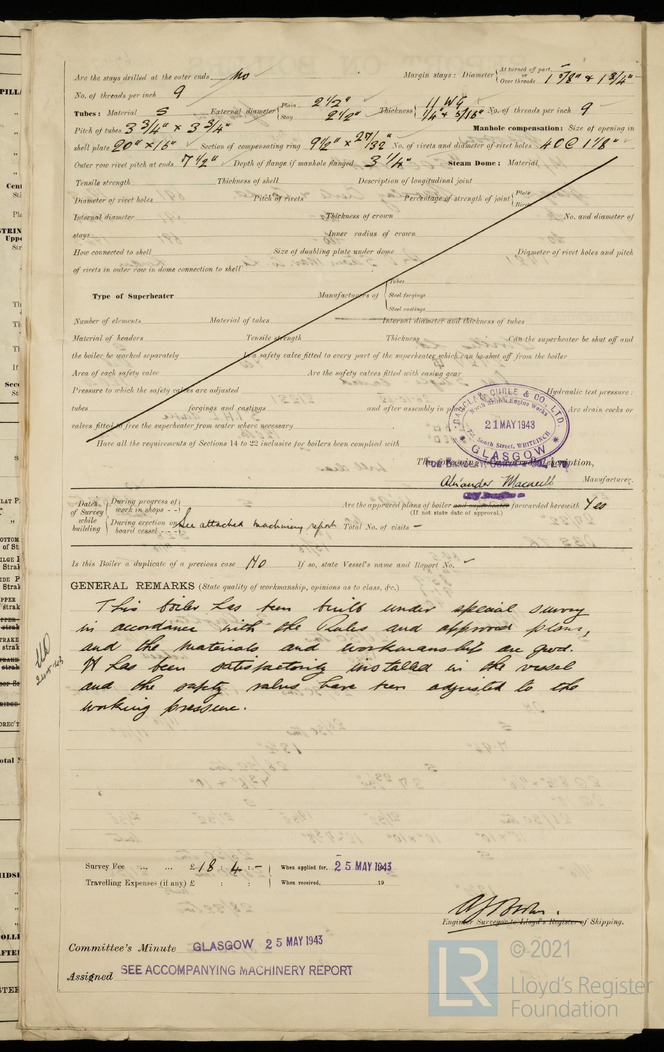 Are the stays drilled at the outer ends No Margin stays: Diameter { At turned off part, or Over threads 1 5/8" & 1 3/4"
No. of threads per inch 9
Tubes: Material S External diameter { Plain 2 1/2" Stay 2 1/2" Thickness { 11 WG 1/4" & 5/16" No. of threads per inch 9
Pitch of tubes 3 3/4" x 3 3/4" Manhole compensation: Size of opening in
shell plate 20" x 16" Section of compensating ring 9 1/2" x 27/32" No. of rivets and diameter of rivet holes 40 @ 1 1/8"
Outer row rivet pitch at ends 7 1/2" Depth of flange if manhole flanged 3 1/4" Steam Dome: Material
Tensile strength Thickness of shell Description of longitudinal joint
Diameter of rivet holes Pitch of rivets Percentage of strength of joint { Plate Rivets
Internal diameter Thickness of crown No. and diameter of
stays Inner radius of crown
How connected to shell Size of doubling plate under dome Diameter of rivet holes and pitch
of rivets in outer row in dome connection to shell
Type of Superheater Manufacturers of { Tubes Steel forgings Steel castings
Number of elements Material of tubes Internal diameter and thickness of tubes
Material of headers Tensile strength Thickness Can the superheater be shut off and
the boiler be worked separately Is a safety valve fitted to every part of the superheater which can be shut off from the boiler
Area of each safety valve Are the safety valves fitted with easing gear
Pressure to which the safety valves are adjusted Hydraulic test pressure:
tubes forgings and castings and after assembly in place Are drain cocks or
valves fitted to free the superheater from water where necessary
Have all the requirements of Sections 14 to 22 inclusive for boilers been complied with
BARCLAY, CURLE & CO. LTD.
North British Engine Works
21 MAY 1943
South Street, WHITEINCH
GLASGOW
The foregoing is a correct description,
FOR BARCLAY, CURLE & CO. LTD.
Manufacturer.
Dates of Survey while building { During progress of work in shops - - During erection on board vessel - - - See attached machinery report Are the approved plans of boiler and superheater forwarded herewith Yes
(If not state date of approval.)
Total No. of visits -
Is this Boiler a duplicate of a previous case No If so, state Vessel's name and Report No. -
GENERAL REMARKS (State quality of workmanship, opinions as to class, &c.)
This boiler has been built under special survey
in accordance with the Rules and approved plans,
and the materials and workmanship are good.
It has been satisfactorily installed in the vessel
and the safety valves have been adjusted to the
working pressure.
Survey Fee ... ... £ 18 : 4 : - { When applied for, 25 MAY 1943
Travelling Expenses (if any) £ : : When received, 19
Engineer Surveyor to Lloyd's Register of Shipping.
Committee's Minute GLASGOW 25 MAY 1943
Assigned SEE ACCOMPANYING MACHINERY REPORT
LR © 2021
Lloyd's Register
Foundation